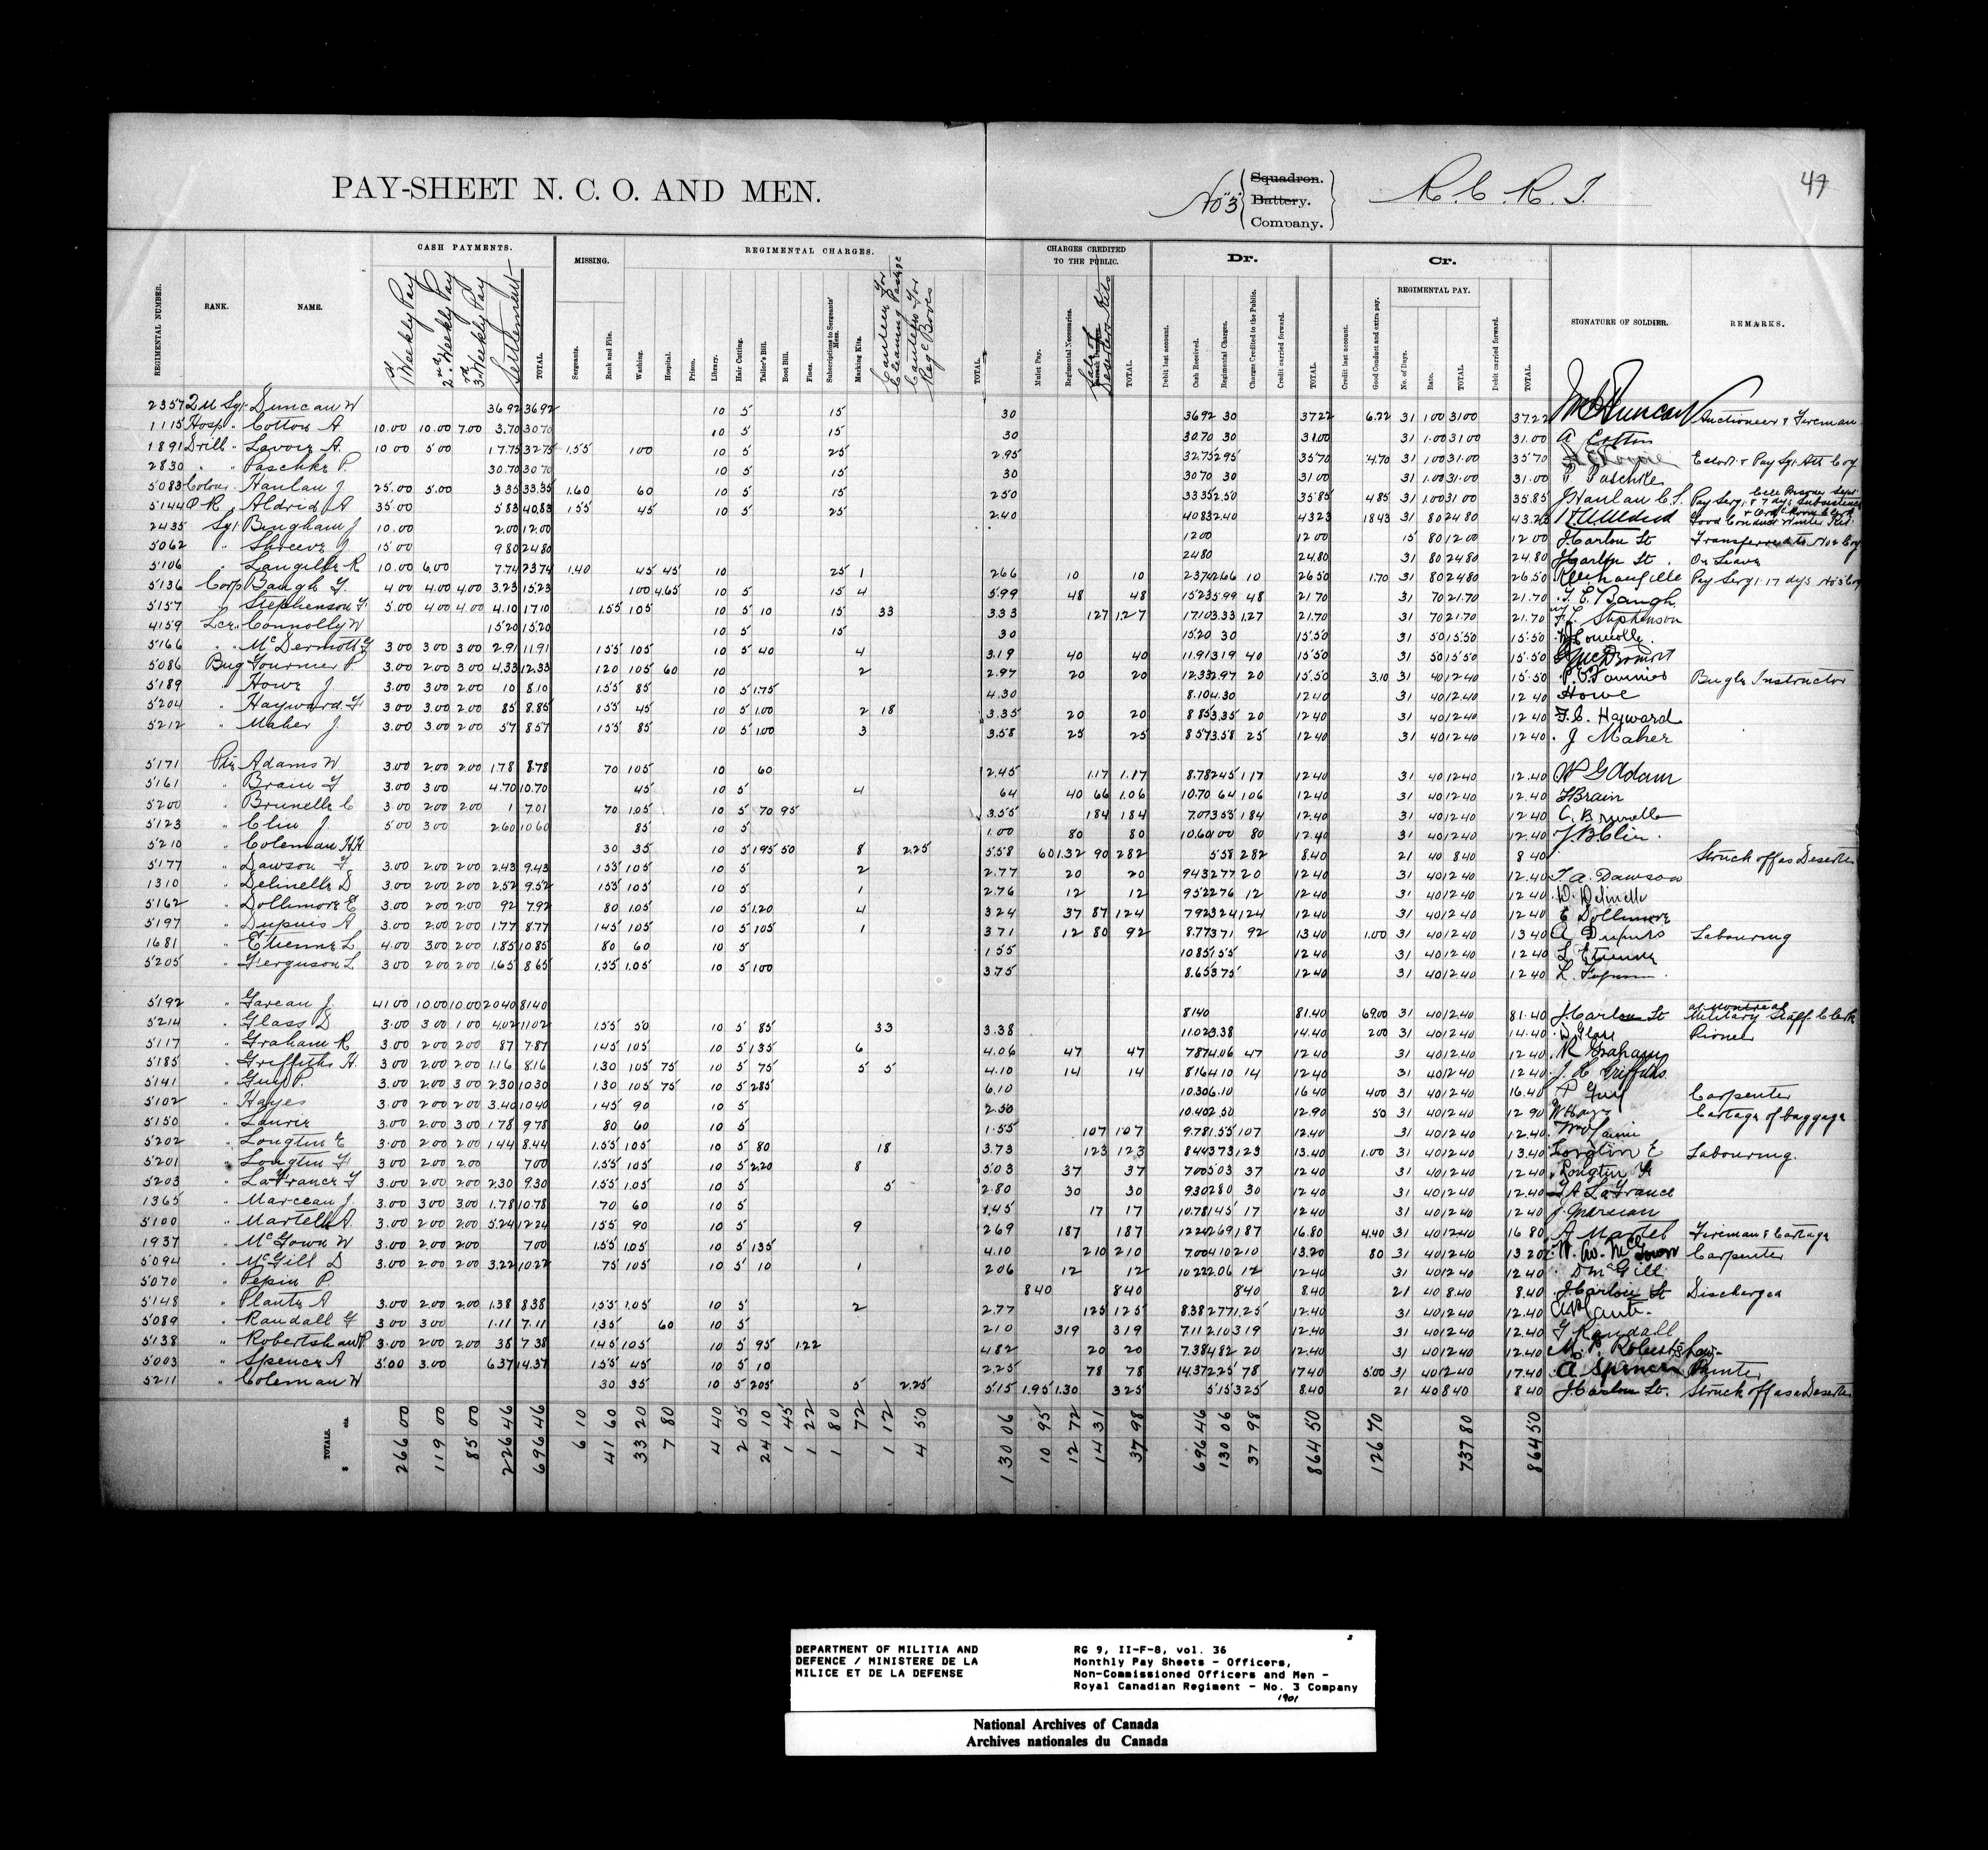 PAY-SHEET N. C. O. AND MEN.
No "3" Squadron. Battery. Company. R. C. R. I. 47
CASH PAYMENTS. REGIMENTAL CHARGES. CHARGES CREDITED TO THE PUBLIC. Dr. Cr.
MISSING. REGIMENTAL PAY.
REGIMENTAL NUMBER. RANK. NAME. 1st Weekly Pay 2nd Weekly Pay 3rd Weekly Pay Settlement TOTAL. Sergeants. Rank and File. Washing. Hospital. Prison. Library. Hair Cutting. Tailor's Bill. Boot Bill. Fines. Subscriptions to Sergeants' Mess. Marking Kits. Canteen For Cleaning Canteen For TOTAL. Mulct Pay. Regimental Necessaries. Sale of Deserters Kits TOTAL. Debit last account. Cash Received. Regimental Charges. Charges Credited to the Public. Credit carried forward. TOTAL. Credit last account. Good Conduct and extra pay. No. of Days. Rate. TOTAL. Debit carried forward. TOTAL. SIGNATURE OF SOLDIER. REMARKS.
2357 QM Sgt Duncan W 36 92 36 92 10 5 15 30 36 92 30 37 22 6.22 31 1 00 31 00 37.22 Duncan Auctioneer & Fireman
1115 Hosp " Cotton A 10.00 10.00 7.00 3.70 30 70 10 5 15 30 30.70 30 31.00 31 1.00 31 00 31.00 A Cotton
1891 Drill " Lavoie A. 10 00 5 00 17.75 32 75 1.55 1 00 10 5 25 2.95 32.75 2 95 35 70 4.70 31 1 00 31.00 35 70 Pay Sgt Att Coy
2830 " " Paschke P. 30.70 30 70 10 5 15 30 30 70 30 31 00 31 1.00 31.00 31.00 P Paschke
5083 Colour " Hanlan J 25.00 5.00 3 35 33.35 1.60 60 10 5 15 2 50 33 35 2.50 35 85 4 85 31 1.00 31 00 35.85 J Hanlan C.S.
5144 O R " Aldrid A 35.00 5 83 40.83 1 55 45 10 5 25 2.40 40 83 2.40 43 23 18 43 31 80 24 80 43.23
2435 Sgt Bingham J 10.00 2.00 12.00 12 00 12 00 15 80 12 00 12 00 J Carlou St Transferred to No 2 Coy
5062 " Shreeve J 15 00 9 80 24 80 24 80 24.80 31 80 24 80 24.80 J Carlou St. On Leave
5106 " Langille R 10.00 6.00 7.74 23 74 1.40 45 45 10 25 1 2 66 10 10 23 74 2.66 10 26 50 1.70 31 80 24 80 26 50 Pay Sergt 17 days No 3 Coy
5136 Corp Baugh F. 4 00 4.00 4.00 3.23 15.23 1 00 4.65 10 5 15 4 5.99 48 48 15 23 5.99 48 21 70 31 70 21.70 21.70 F. E. Baugh
5157 " Stephenson F 5.00 4 00 4 00 4.10 17 10 1.55 1 05 10 5 10 15 4 33 3.33 1 27 1.27 17.10 3.33 1.27 21.70 31 70 21.70 21.70 F.L. Stephenson
4159 Lcr " Connolly W 15 20 15 20 10 5 15 30 15 20 30 15.50 31 50 15.50 15.50 W Connolly
5166 " McDermott F 3 00 3 00 3 00 2.91 11 91 1 55 1 05 10 5 40 4 3.19 40 40 11.91 3 19 40 15 50 31 50 15 50 15.50 McDermott
5086 Bug Fournier P. 3.00 2.00 3 00 4.33 12.33 1 20 1 05 60 10 2 2.97 20 20 12.33 2.97 20 15.50 3.10 31 40 12 40 15.50 P. Fournier Bugle Instructor
5189 " Howe J 3.00 3 00 2.00 10 8.10 1.55 85 10 5 1.75 4.30 8.10 4.30 12 40 31 40 12.40 12 40 Howe
5204 " Hayward F 3 00 3.00 2.00 85 8.85 1 55 45 10 5 1.00 2 18 3.35 20 20 8 85 3.35 20 12 40 31 40 12 40 12 40 F. C. Hayward
5212 " Maher J. 3.00 3.00 2 00 57 8 57 1 55 85 10 5 1.00 3 3.58 25 25 8 57 3.58 25 12 40 31 40 12 40 12 40 J Maher
5171 Pte Adams W 3.00 2.00 2.00 1.78 8.78 70 1 05 10 60 2.45 1.17 1.17 8.78 2 45 1 17 12 40 31 40 12 40 12.40 W G Adam
5161 " Brain F 3.00 3 00 4.70 10.70 45 10 5 4 64 40 66 1.06 10.70 64 1 06 12.40 31 40 12 40 12.40 F Brain
5200 " Brunelle C 3 00 2 00 2 00 1 7.01 70 1.05 10 5 70 95 3.55 1 84 1 84 7.07 3 55 1 84 12.40 31 40 12 40 12 40 C. Brunelle
5123 " Clin J 5 00 3 00 2.60 10 60 85 10 5 1.00 80 80 10.60 1 00 80 12.40 31 40 12 40 12.40 J. B Clin.
5210 " Coleman H 30 35 10 5 1 95 50 8 2.25 5.58 60 1.32 90 2 82 5 58 2 82 8.40 21 40 8 40 8 40 Struck off as Deserter
5177 " Dawson F 3.00 2.00 2.00 2.43 9.43 1 55 1 05 10 5 2 2.77 20 20 9 43 2 77 20 12 40 31 40 12 40 12.40 F. A. Dawson
1310 " Delinelle D 3.00 2 00 2.00 2.52 9.52 1 55 1 05 10 5 1 2.76 12 12 9 52 2 76 12 12 40 31 40 12.40 12 40 D. Delinelle
5162 " Dollimore E 3.00 2.00 2.00 92 7.92 80 1.05 10 5 1.20 4 3 24 37 87 1 24 7 92 3 24 1 24 12 40 31 40 12.40 12 40 E Dollimore
5197 " Dupuis A 3.00 2.00 2 00 1.77 8.77 1 45 1 05 10 5 1 05 1 3 71 12 80 92 8.77 3 71 92 13 40 1.00 31 40 12.40 13 40 A Dupuis Labouring
1681 " Etienne L 4.00 3 00 2 00 1.85 10 85 80 60 10 5 1 55 10 85 1 55 12 40 31 40 12 40 12 40 L Etienne
5205 " Ferguson L 3 00 2 00 2 00 1.65 8 65 1.55 1.05 10 5 1 00 3 75 8.65 3 75 12 40 31 40 12.40 12 40
5192 " Gareau J. 41 00 10.00 10.00 20 40 81 40 81 40 81.40 69.00 31 40 12.40 81.40 J Carlou St at Montreal Military Staff Clerk
5214 " Glass D 3.00 3 00 1 00 4.02 11 02 1.55 50 10 5 85 33 3.38 11.02 3.38 14.40 2 00 31 40 12 40 14.40 D Glass Pioneer
5117 " Graham R 3.00 2.00 2 00 87 7.87 1 45 1 05 10 5 1 35 6 4.06 47 47 7 87 4.06 47 12 40 31 40 12 40 12 40 R Graham
5185 " Griffiths H 3 00 2.00 2 00 1.16 8.16 1.30 1 05 75 10 5 75 5 5 4.10 14 14 8 16 4 10 14 12 40 31 40 12 40 12 40 J. H Griffiths
5141 " Guy P. 3 00 2.00 3 00 2.30 10 30 1 30 1 05 75 10 5 2 85 6.10 10.30 6.10 16 40 4 00 31 40 12 40 16.40 P Guy Carpenter
5102 " Hayes 3.00 2 00 2 00 3.40 10 40 1 45 90 10 5 2.50 10.40 2 50 12.90 50 31 40 12 40 12 90 W Hays Cartage of baggage
5150 " Laurie 3.00 2.00 3 00 1.78 9 78 80 60 10 5 1.55 1 07 1 07 9.78 1.55 1 07 12.40 31 40 12 40 12.40
5202 " Longtin E 3.00 2.00 2 00 1.44 8.44 1.55 1 05 10 5 80 18 3.73 1 23 1 23 8 44 3 73 1 23 13.40 1.00 31 40 12 40 13.40 Longtin E Labouring.
5201 " Longtin F 3.00 2.00 2.00 7 00 1.55 1 05 10 5 2 20 8 5.03 37 37 7 00 5 03 37 12 40 31 40 12 40 12 40 Longtin F
5203 " LaFrance F 3.00 2.00 2 00 2.30 9.30 1.55 1.05 10 5 5 2.80 30 30 9 30 2 80 30 12 40 31 40 12 40 12.40 F A LaFrance
1365 " Marceau J. 3 00 3.00 3 00 1.78 10.78 70 60 10 5 1.45 17 17 10.78 1 45 17 12 40 31 40 12 40 12 40 J. Marceau
5100 " Martell A. 3.00 2.00 2 00 5.24 12 24 1 55 90 10 5 9 2 69 1 87 1 87 12 24 2 69 1 87 16.80 4.40 31 40 12 40 16 80 A Martel Fireman & Cartage
1937 " McGown W 3.00 2.00 2 00 7 00 1.55 1.05 10 5 1 35 4.10 2 10 2 10 7.00 4 10 2 10 13.20 80 31 40 12 40 13 20 Carpenter
5094 " McGill D 3.00 2 00 2 00 3.22 10 22 75 1 05 10 5 10 1 2 06 12 12 10 22 2.06 12 12.40 31 40 12 40 12 40 D McGill
5070 " Pepin P. 8 40 8 40 8 40 8.40 21 40 8.40 8.40 J Carlou St Discharged
5148 " Plante A 3.00 2.00 2.00 1.38 8 38 1.55 1.05 10 5 2 2.77 1 25 1 25 8.38 2 77 1.25 12.40 31 40 12 40 12.40
5089 " Randall G 3 00 3 00 1.11 7.11 1 35 60 10 5 2 10 3 19 3 19 7.11 2 10 3 19 12.40 31 40 12 40 12.40 G Randall
5138 " Robertshaw P 3.00 2.00 2.00 38 7 38 1.45 1 05 10 5 95 1 22 4 82 20 20 7.38 4 82 20 12.40 31 40 12 40 12.40
5003 " Spence A 5.00 3.00 6 37 14.37 1.55 45 10 5 10 2 25 78 78 14.37 2 25 78 17 40 5.00 31 40 12 40 17.40 A Spence Painter
5211 " Coleman W 30 35 10 5 2 05 5 2.25 5.15 1.95 1.30 3 25 5 15 3 25 8.40 21 40 8 40 8 40 J Carlou St. Struck off as a Deserter
TOTALS. $ cts. 266 00 119 00 85 00 226 46 696 46 6 10 41 60 33 20 7 80 4 40 2 05 24 10 1 45 1 22 1 80 72 1 12 4 50 130 06 10 95 12 72 14 31 37 98 696 46 130 06 37 98 864 50 126 70 737 80 864 50
DEPARTMENT OF MILITIA AND DEFENCE / MINISTERE DE LA MILICE ET DE LA DEFENSE
RG 9, II-F-8, vol. 36
Monthly Pay Sheets - Officers,
Non-Commissioned Officers and Men -
Royal Canadian Regiment - No. 3 Company
1901
National Archives of Canada
Archives nationales du Canada